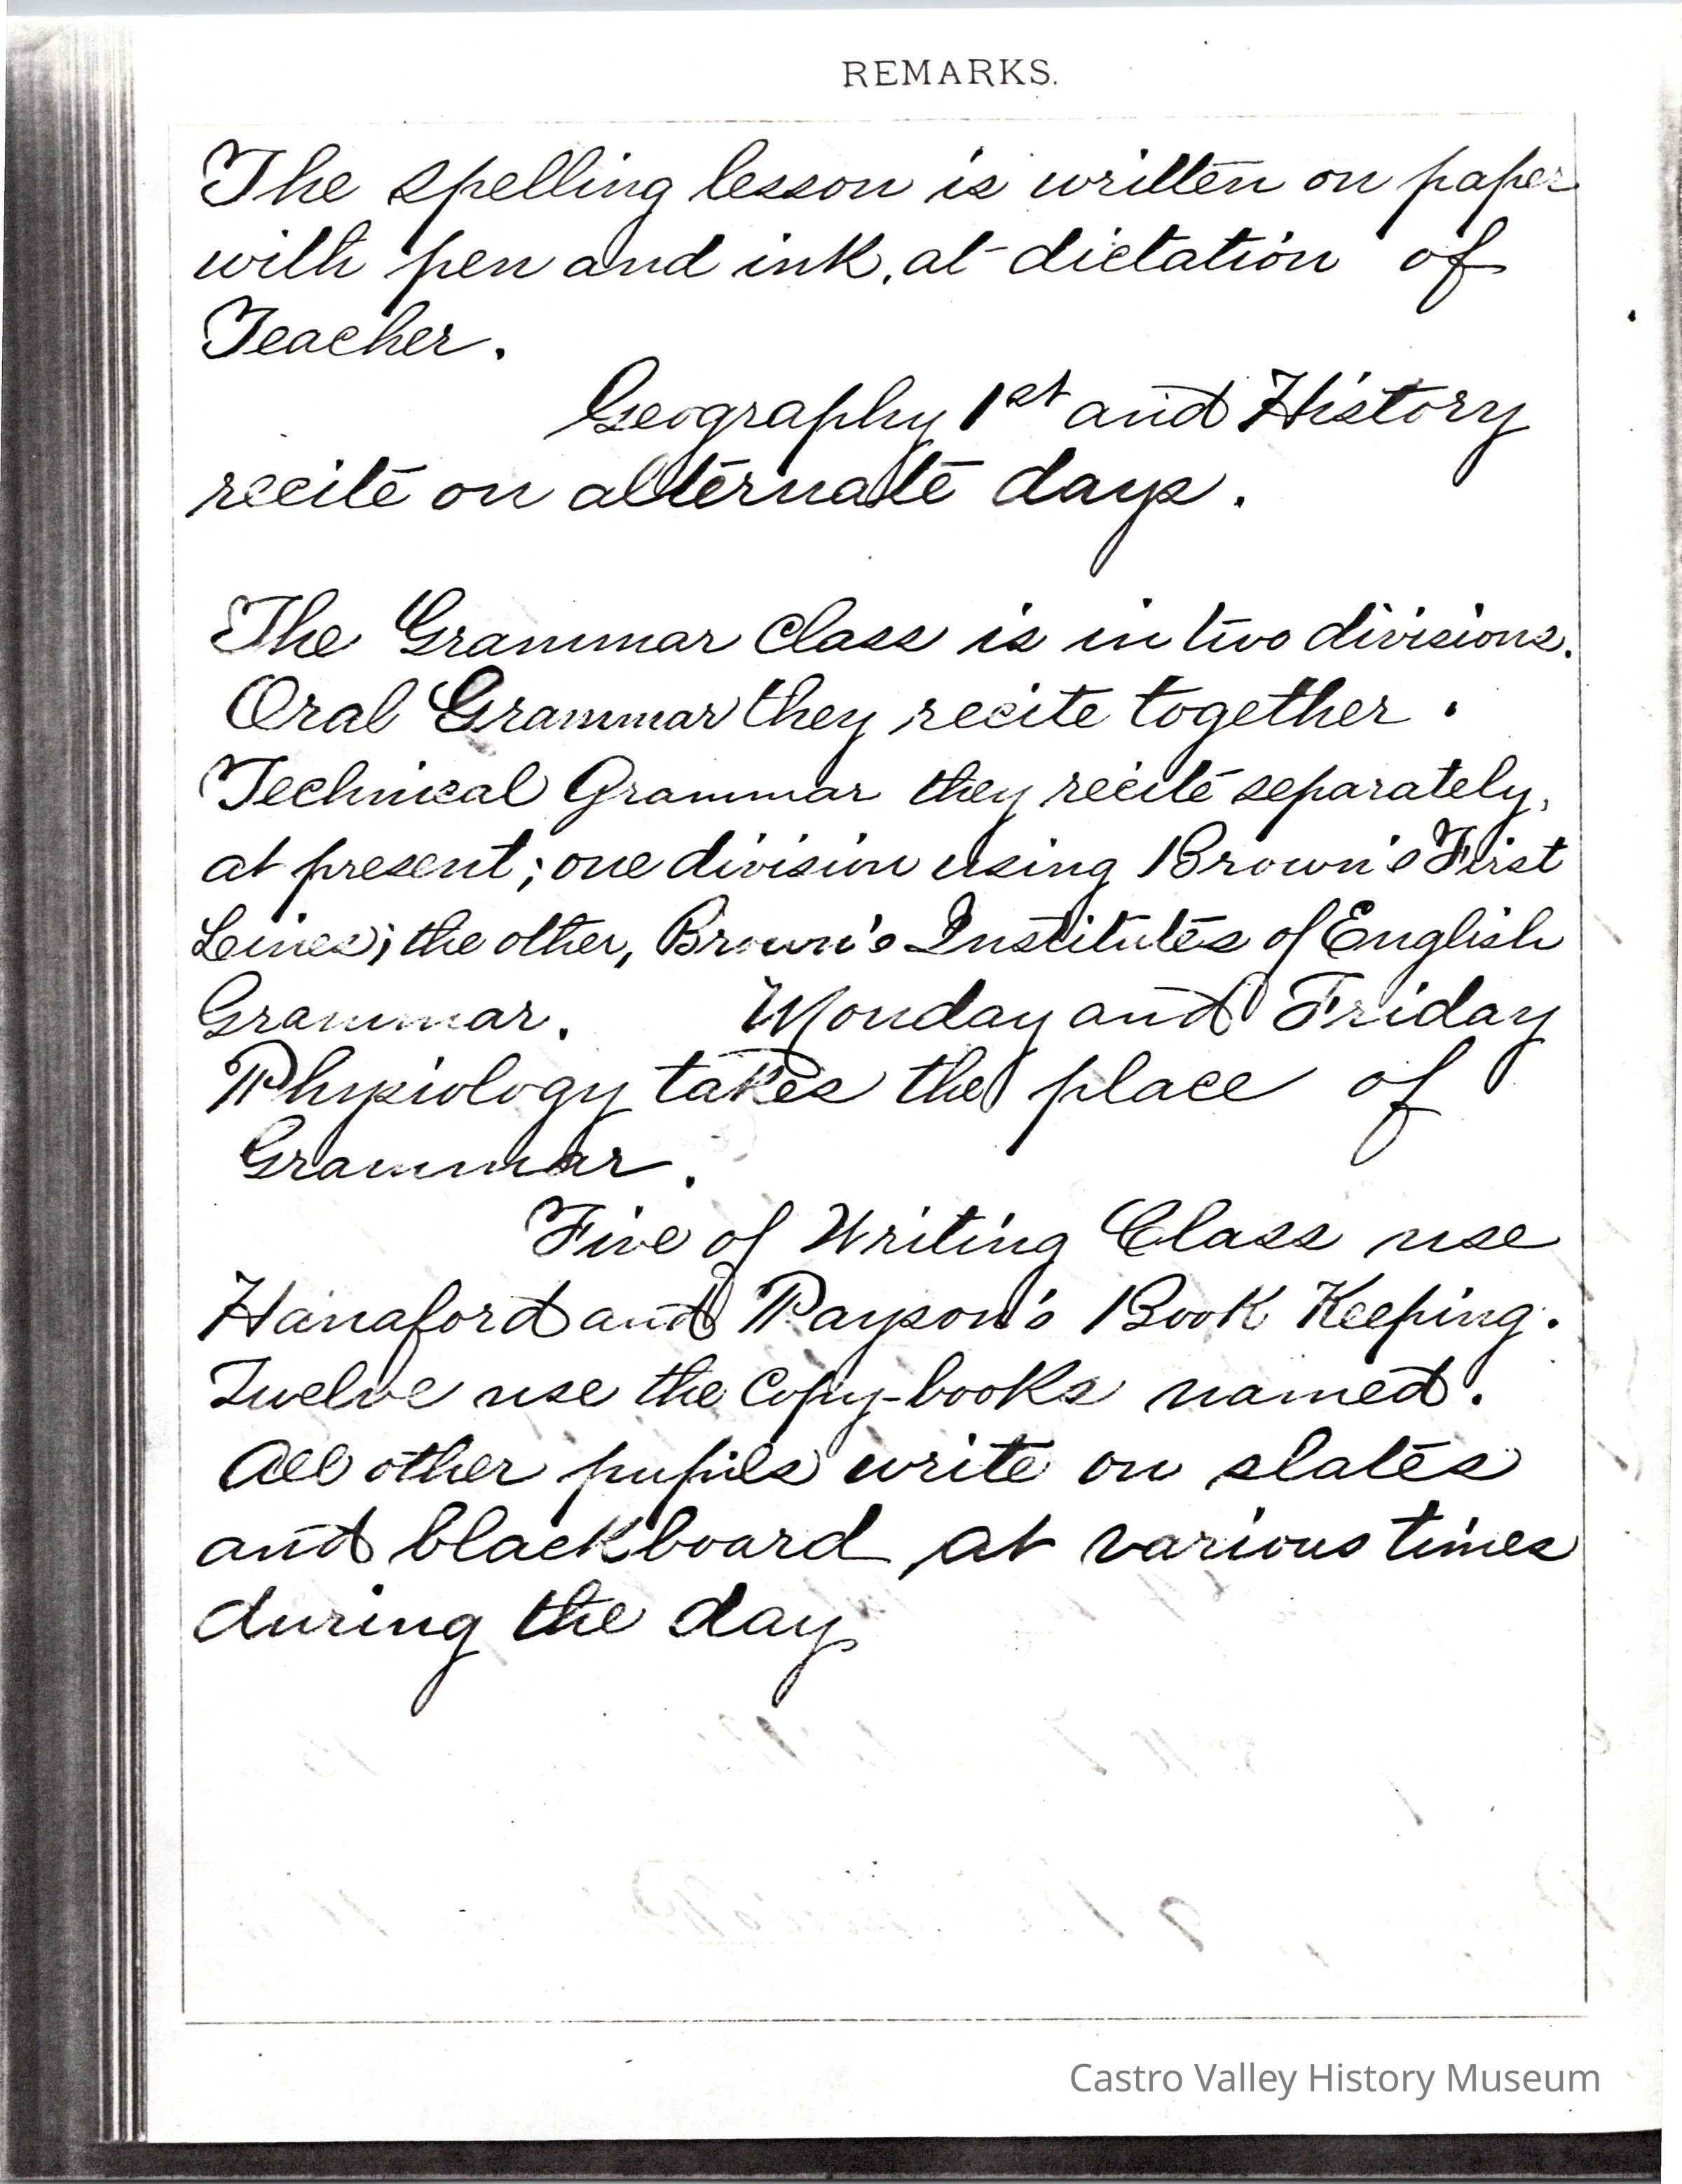 REMARKS.
The spelling lesson is written on paper
with pen and ink, at dictation of
Teacher.
Geography 1st and History
recite on alternate days.
The Grammar Class is in two divisions.
Oral Grammar they recite together.
Technical Grammar they recite separately,
at present; one division using Brown's First
Lines; the other, Brown's Institutes of English
Grammar. Monday and Friday
Physiology takes the place of
Grammar.
Five of Writing Class use
Hanaford and Payson's Book Keeping.
Twelve use the Copy-books named.
All other pupils write on slates
and blackboard at various times
during the day
Castro Valley History Museum